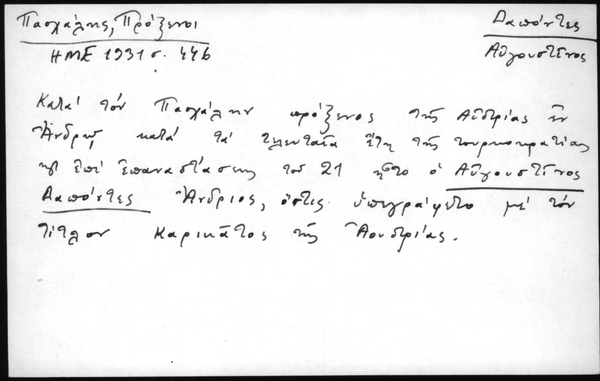 Πασχάλης, Πρόξενοι
ΗΜΕ 1931 σ. 446
Δαπόντες
Αὐγουστῖνος
Κατά τόν Πασχάλην πρόξενος τῆς Αὐστρίας ἐν
Ἄνδρῳ, κατά τά τελευταῖα ἔτη τῆς τουρκοκρατίας
καί ἐπί ἐπαναστάσεως τοῦ 21 ἦτο ὁ Αὐγουστῖνος
Δαπόντες Ἄνδριος, ὅστις ὑπεγράφετο μέ τόν
τίτλον Καρικᾶτος τῆς Ἀουστρίας.